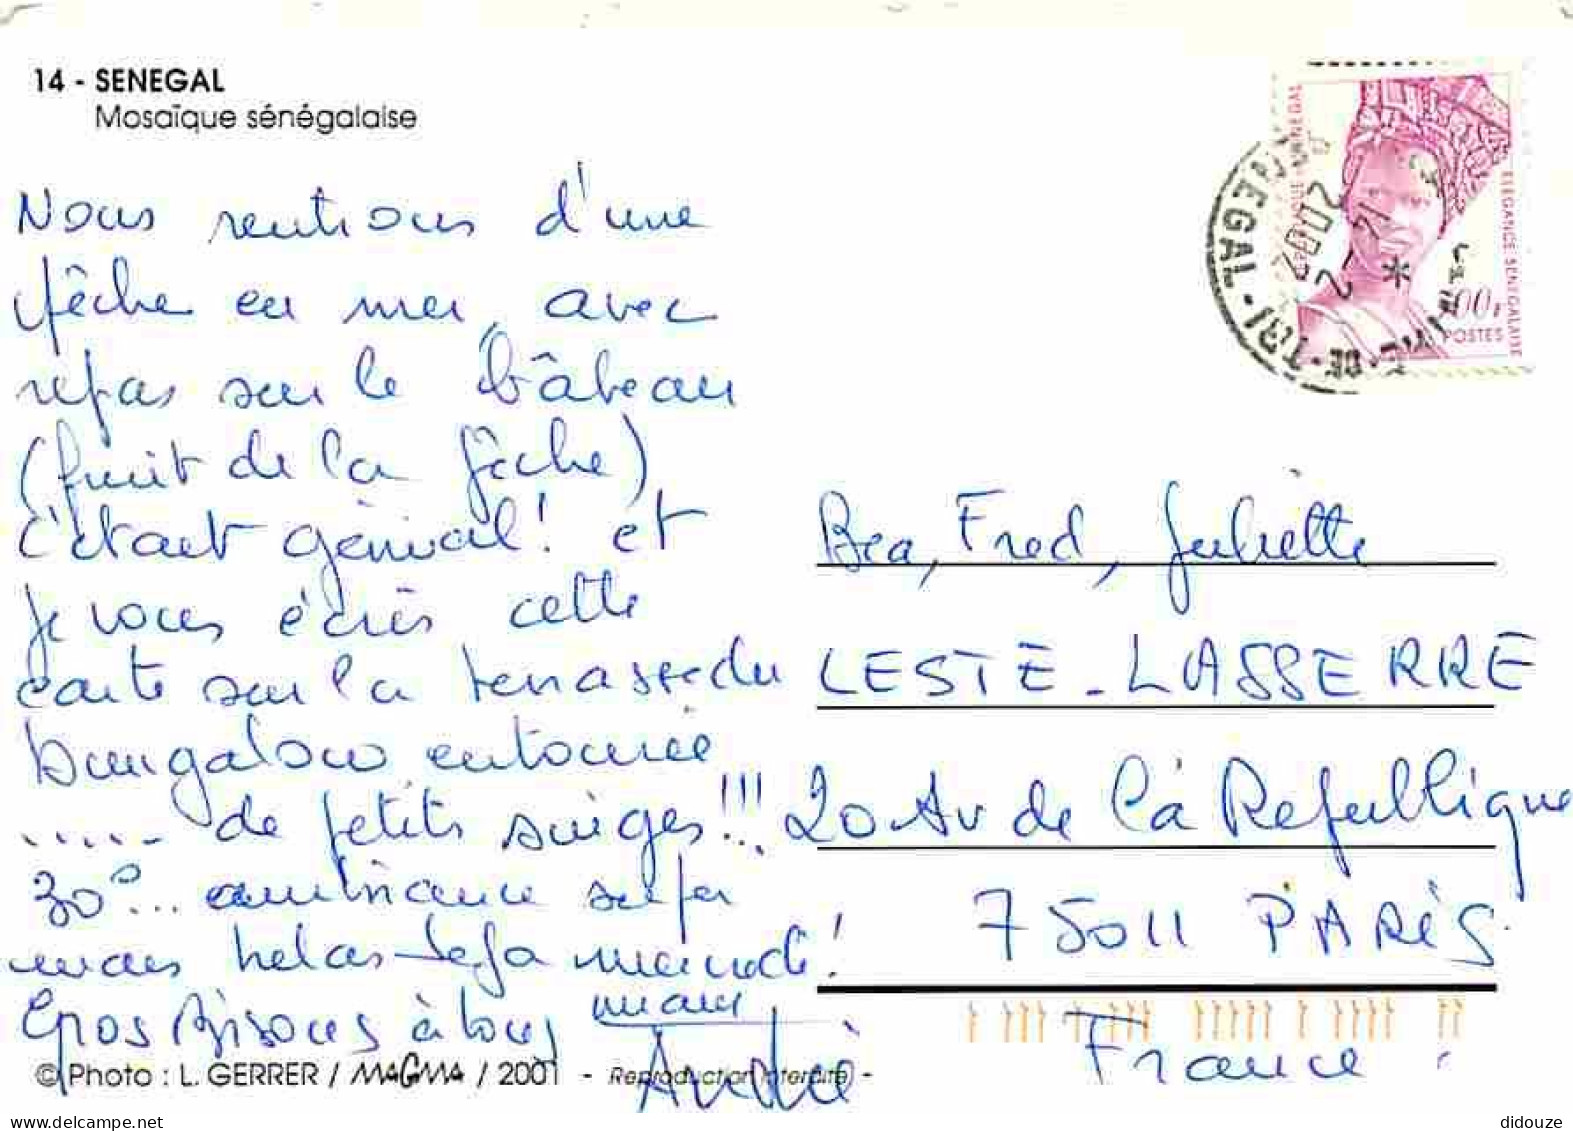 14 - SENEGAL
Mosaïque sénégalaise
Nous rentrons d'une
pêche en mer, avec
repas sur le bâteau
(fruit de la pêche)
c'était génial! et
je vous écris cette
carte sur la terrasse du
bungalow entourée
..... de petits singes!!!
30°... ambiance super
mais hélas déjà mercredi!
Gros Bisous à tous
mamy
André
© Photo : L. GERRER / MAGMA / 2001 - Reproduction interdite -
RÉPUBLIQUE DU SÉNÉGAL
ELEGANCE SENEGALAISE
POSTES
SENEGAL
2002
Bea, Fred, Juliette
LESTE-LASSERRE
20 Av de la République
75011 PARIS
France
didouze